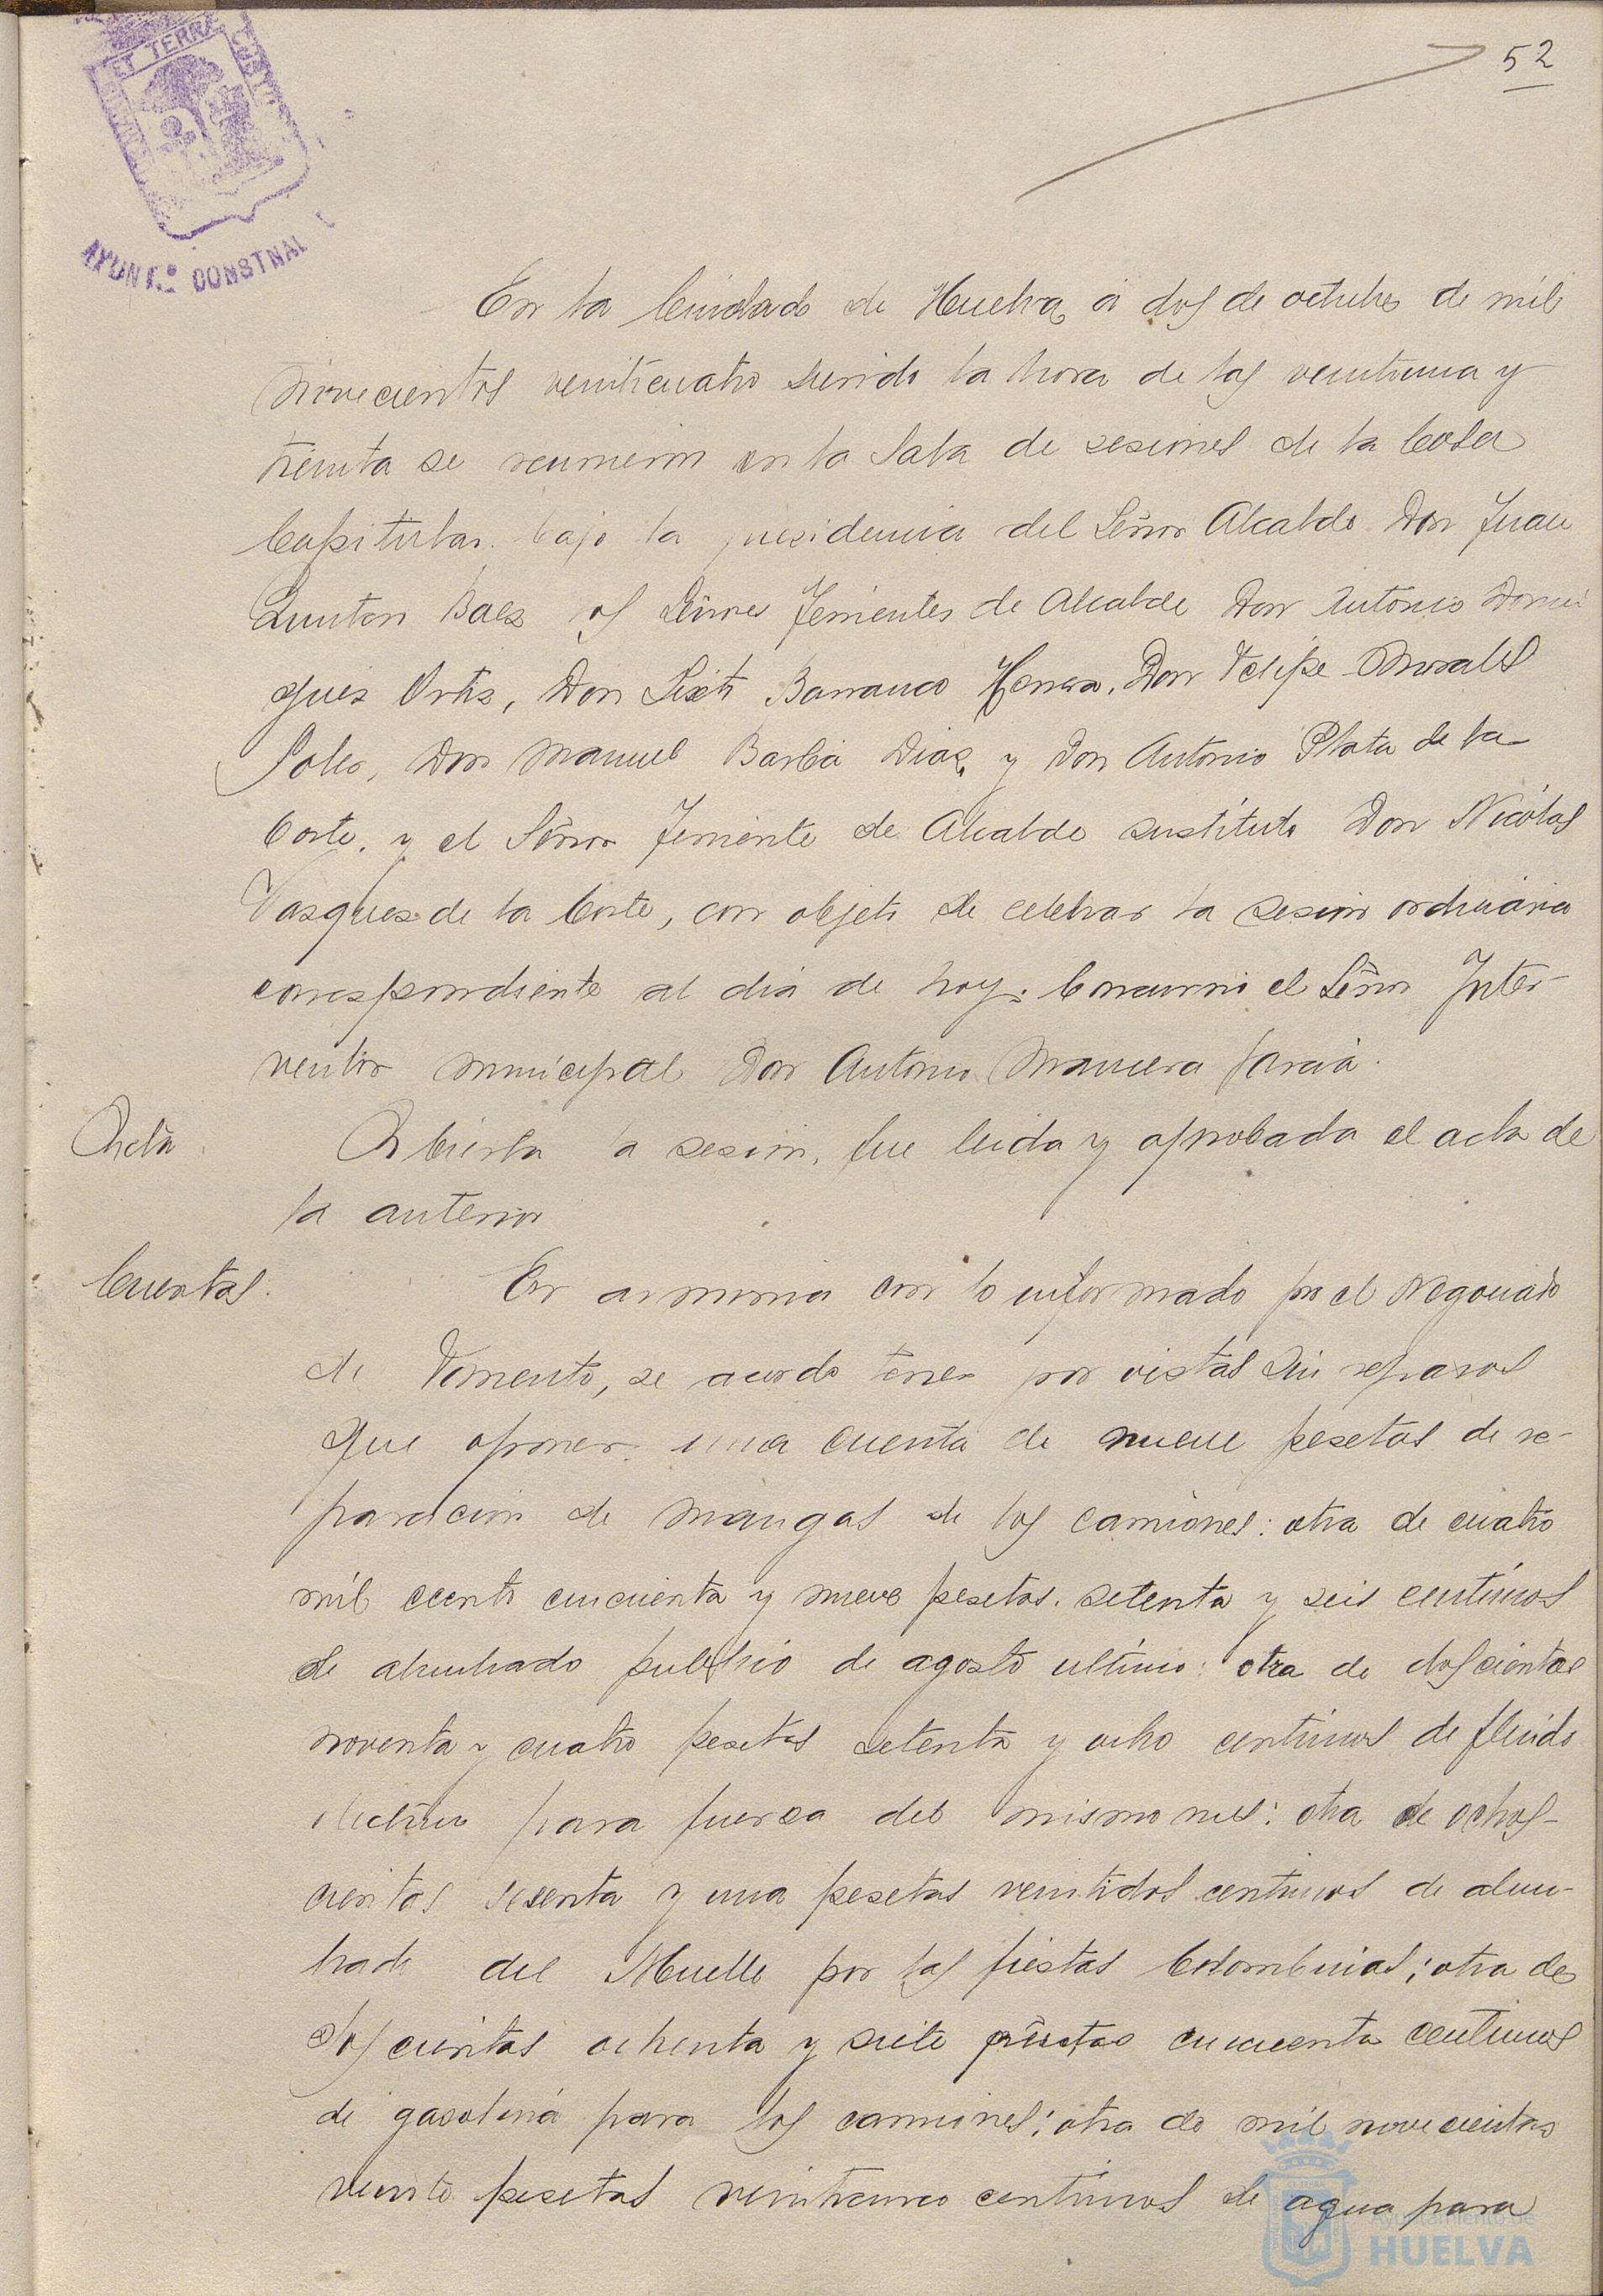 52
ET TERRAE
AYUNT.º CONSTNAL
En la Ciudad de Huelva, a dos de octubre de mil
novecientos veinticuatro siendo la hora de las veintiuna y
treinta se reunieron en la Sala de sesiones de la Casa
Capitular. bajo la presidencia del Señor Alcalde Don Juan
Quintero Baez os Señores Tenientes de Alcalde Don Antonio Domin
guez Ortiz, Don Sixto Barranco Herrera, Don Felipe Morales
Don Manuel Barba Diaz, y Don Antonio Plata de la
Corte, y el Señor Teniente de Alcalde sustituto Don Nicolas
Vazquez de la Corte, con objeto de celebrar la sesion ordinaria
correspondiente al dia de hoy. Concurrió el Señor Inter-
ventor municipal Don Antonio Mancera Garcia.
Acta
Abierta la sesion, fue leida y aprobada el acta de
la anterior
Cuentas.
En armonia con lo informado por el Negociado
de Fomento, se acordo tener por vistas sin reparos
que oponer. una cuenta de nueve pesetas de re-
paracion de mangas de los camiones: otra de cuatro
mil ciento cincuenta y nueve pesetas. setenta y seis centimos
de alumbrado publico de agosto ultimo: otra de doscientas
noventa y cuatro pesetas setenta y ocho centimos de fluido
electrico para fuerza del mismo mes: otra de ochos-
cientas sesenta y una pesetas veintidos centimos de alum-
brado del Muelle por las fiestas Colombinas; otra de
doscientas ochenta y siete pesetas cincuenta centimos
de gasolina para los camiones; otra de mil novecientas
veinte pesetas veinticinco centimos de agua para
Ayuntamiento de
HUELVA